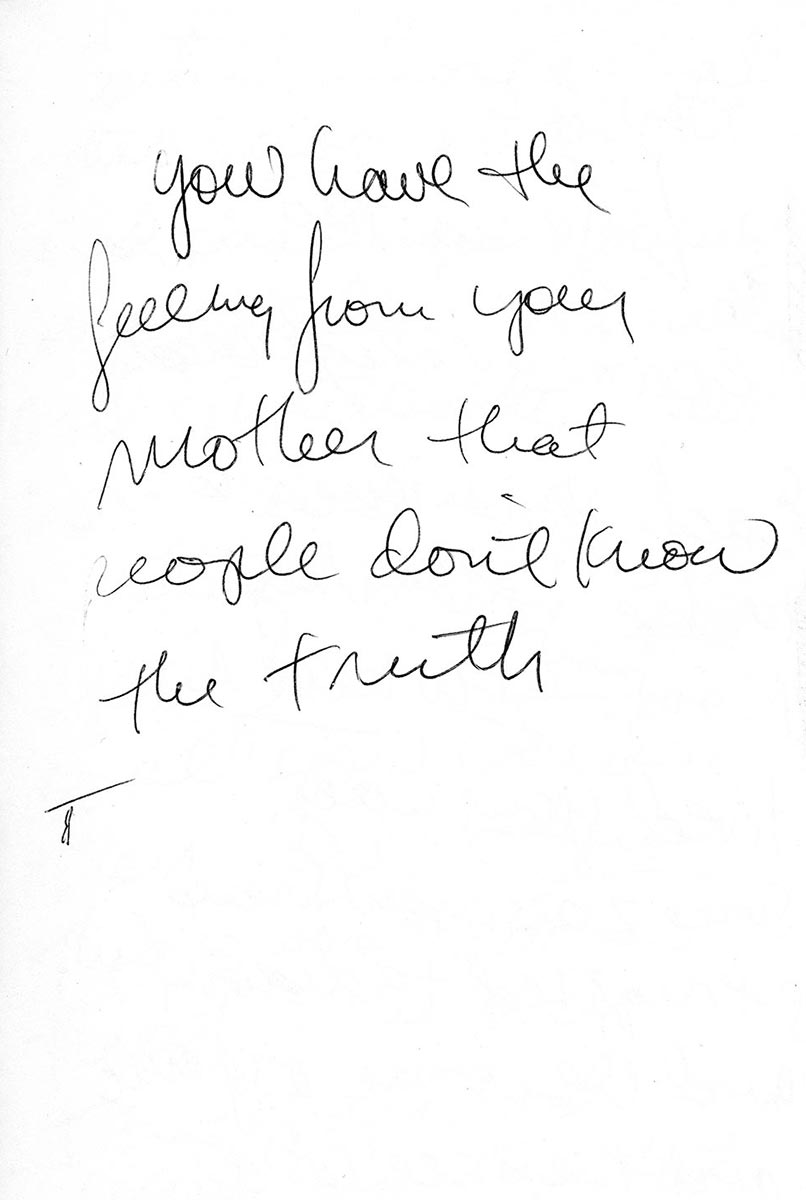 you have the
feeling from your
Mother that
people don't know
the truth